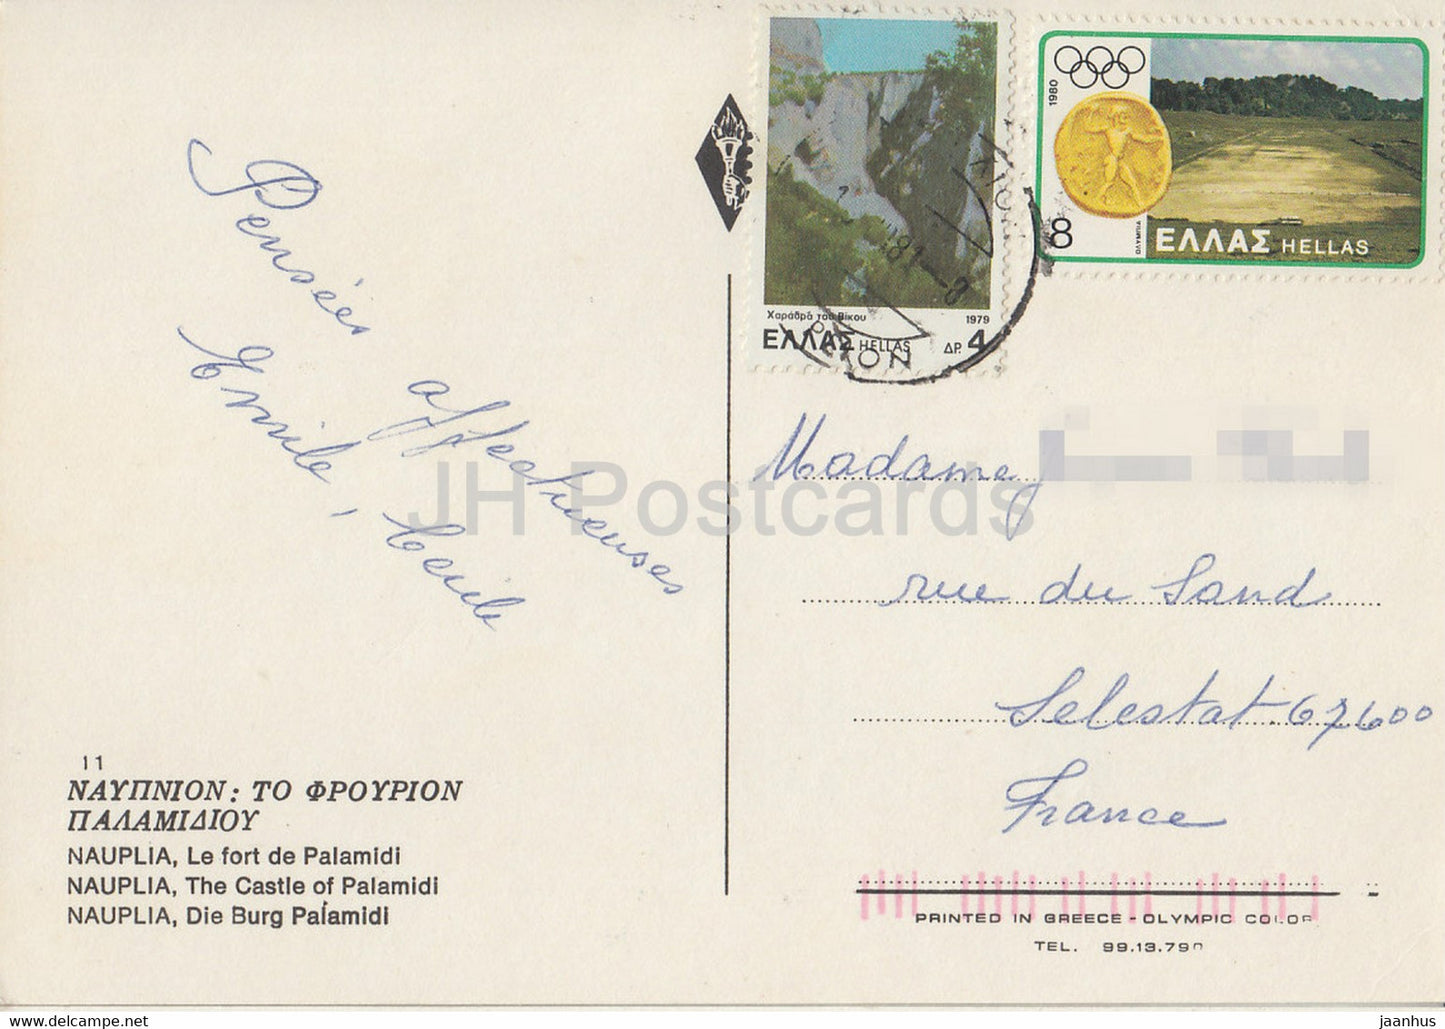 Pensées affectueuses
Emile, Cecile
11
ΝΑΥΠΝΙΟΝ: ΤΟ ΦΡΟΥΡΙΟΝ
ΠΑΛΑΜΙΔΙΟΥ
NAUPLIA, Le fort de Palamidi
NAUPLIA, The Castle of Palamidi
NAUPLIA, Die Burg Palamidi
Χαράδρα του Βίκου 1979
ΕΛΛΑΣ HELLAS ΔΡ. 4
81-8
1980
8
ΟΛΥΜΠΙΑ
ΕΛΛΑΣ HELLAS
Madame
rue du Sand
Selestat 67600
France
PRINTED IN GREECE - OLYMPIC COLOR
TEL. 99.13.790
JH Postcards
https://www.hippostcard.com
jaanhus